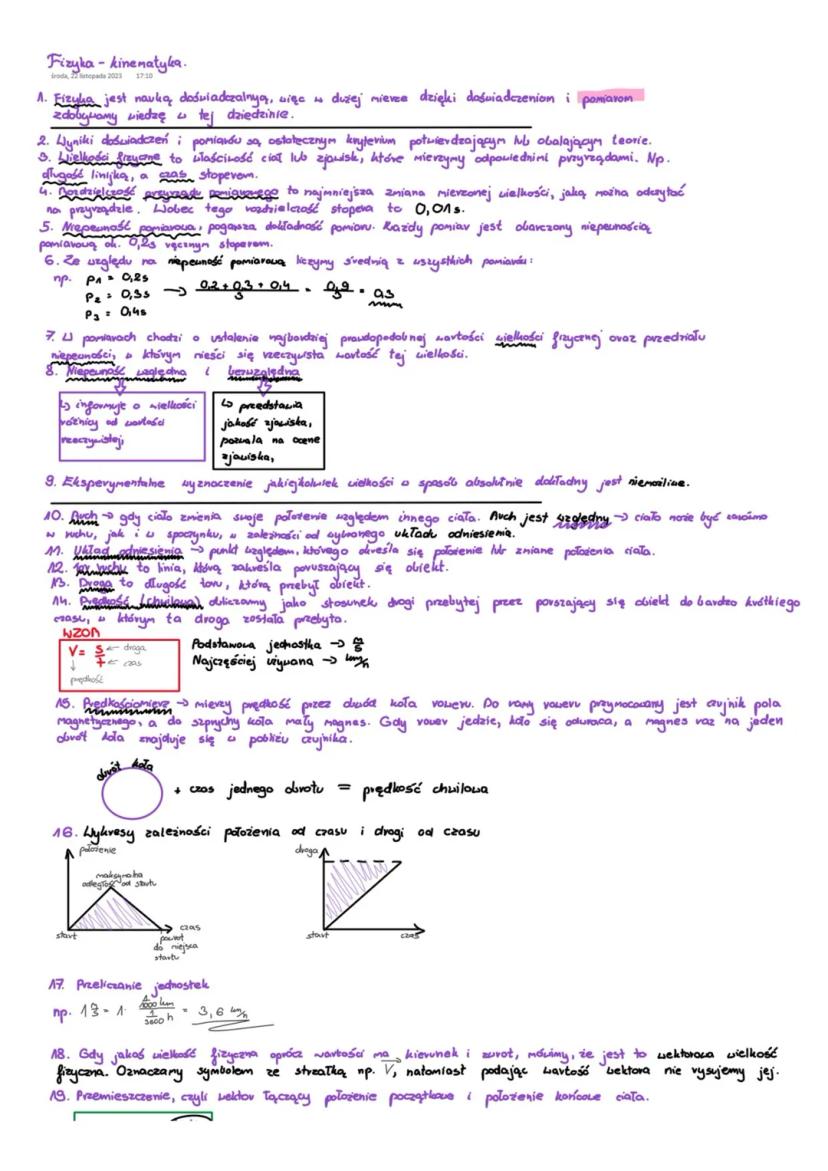 Fizyka - kinematyka.
środa, 22 listopada 2023 17:10
1. Fizyka jest nauką doświadczalnyą, więc w dużej mierze dzięki doświadczeniom i pomiarom
zdobywamy wiedzę w tej dziedzinie.
2. Wyniki doświadczeń i pomiarów są ostatecznym kryterium potwierdzającym lub obalającym teorie.
3. Wielkości fizyczne to właściwość ciał lub zjawisk, które mierzymy odpowiednimi przyrządami. Np.
długość linijką, a czas stoperem.
4. Rozdzielczość przyrządu pomiarowego to najmniejsza zmiana mierzonej wielkości, jaką można odczytać
na przyrządzie. Wobec tego rozdzielczość stopera to 0,01s.
5. Niepewność pomiarowa, pogarsza dokładność pomiaru. Każdy pomiar jest obarczony niepewnością
pomiarową ok. 0,2s ręcznym stoperem.
6. Ze względu na niepewność pomiarową liczymy średnią z wszystkich pomiarów:
np. P1 = 0,2s
P2 = 0,3s → 0,2 + 0,3 + 0,4 / 3 = 0,9 / 3 = 0,3
P3 = 0,4s
7. W pomiarach chodzi o ustalenie najbardziej prawdopodobnej wartości wielkości fizycznej oraz przedziału
niepewności, w którym mieści się rzeczywista wartość tej wielkości.
8. Niepewność względna i bezwzględna
↳ informuje o wielkości
różnicy od wartości
rzeczywistej,
↳ przedstawia
jakość zjawiska,
pozwala na ocenę
zjawiska,
9. Eksperymentalne wyznaczenie jakiejkolwiek wielkości w sposób absolutnie dokładny jest niemożliwe.
10. Ruch → gdy ciało zmienia swoje położenie względem innego ciała. Ruch jest względny → ciało może być zarówno
w ruchu, jak i w spoczynku, w zależności od wybranego układu odniesienia.
11. Układ odniesienia → punkt względem, którego określa się położenie lub zmianę położenia ciała.
12. Tor ruchu to linia, którą zakreśla poruszający się obiekt.
13. Droga to długość toru, którą przebył obiekt.
14. Prędkość (chwilową) obliczamy jako stosunek drogi przebytej przez porszający się obiekt do bardzo krótkiego
czasu, w którym ta droga została przebyta.
WZÓR
V = s / t ← droga
← czas
↓
prędkość
Podstawowa jednostka → m/s
Najczęściej używana → km/h
15. Prędkościomierz → mierzy prędkość przez obwód koła roweru. Do ramy roweru przymocowany jest czujnik pola
magnetycznego, a do szprychy koła mały magnes. Gdy rower jedzie, koło się odwraca, a magnes raz na jeden
obrót koła znajduje się w pobliżu czujnika.
obwót koła
+ czas jednego obrotu = prędkość chwilowa
16. Wykresy zależności położenia od czasu i drogi od czasu
położenie
maksymalna
odległość od startu
start
czas
powrót
do miejsca
startu
droga
start
czas
17. Przeliczanie jednostek
np. 1 m/s = 1 · 1/1000 km / 1/3600 h = 3,6 km/h
18. Gdy jakaś wielkość fizyczna oprócz wartości ma kierunek i zwrot, mówimy, że jest to wektorowa wielkość
fizyczna. Oznaczamy symbolem ze strzałką np. V⃗, natomiast podając wartość wektora nie rysujemy jej.
19. Przemieszczenie, czyli wektor łączący położenie początkowe i położenie końcowe ciała.